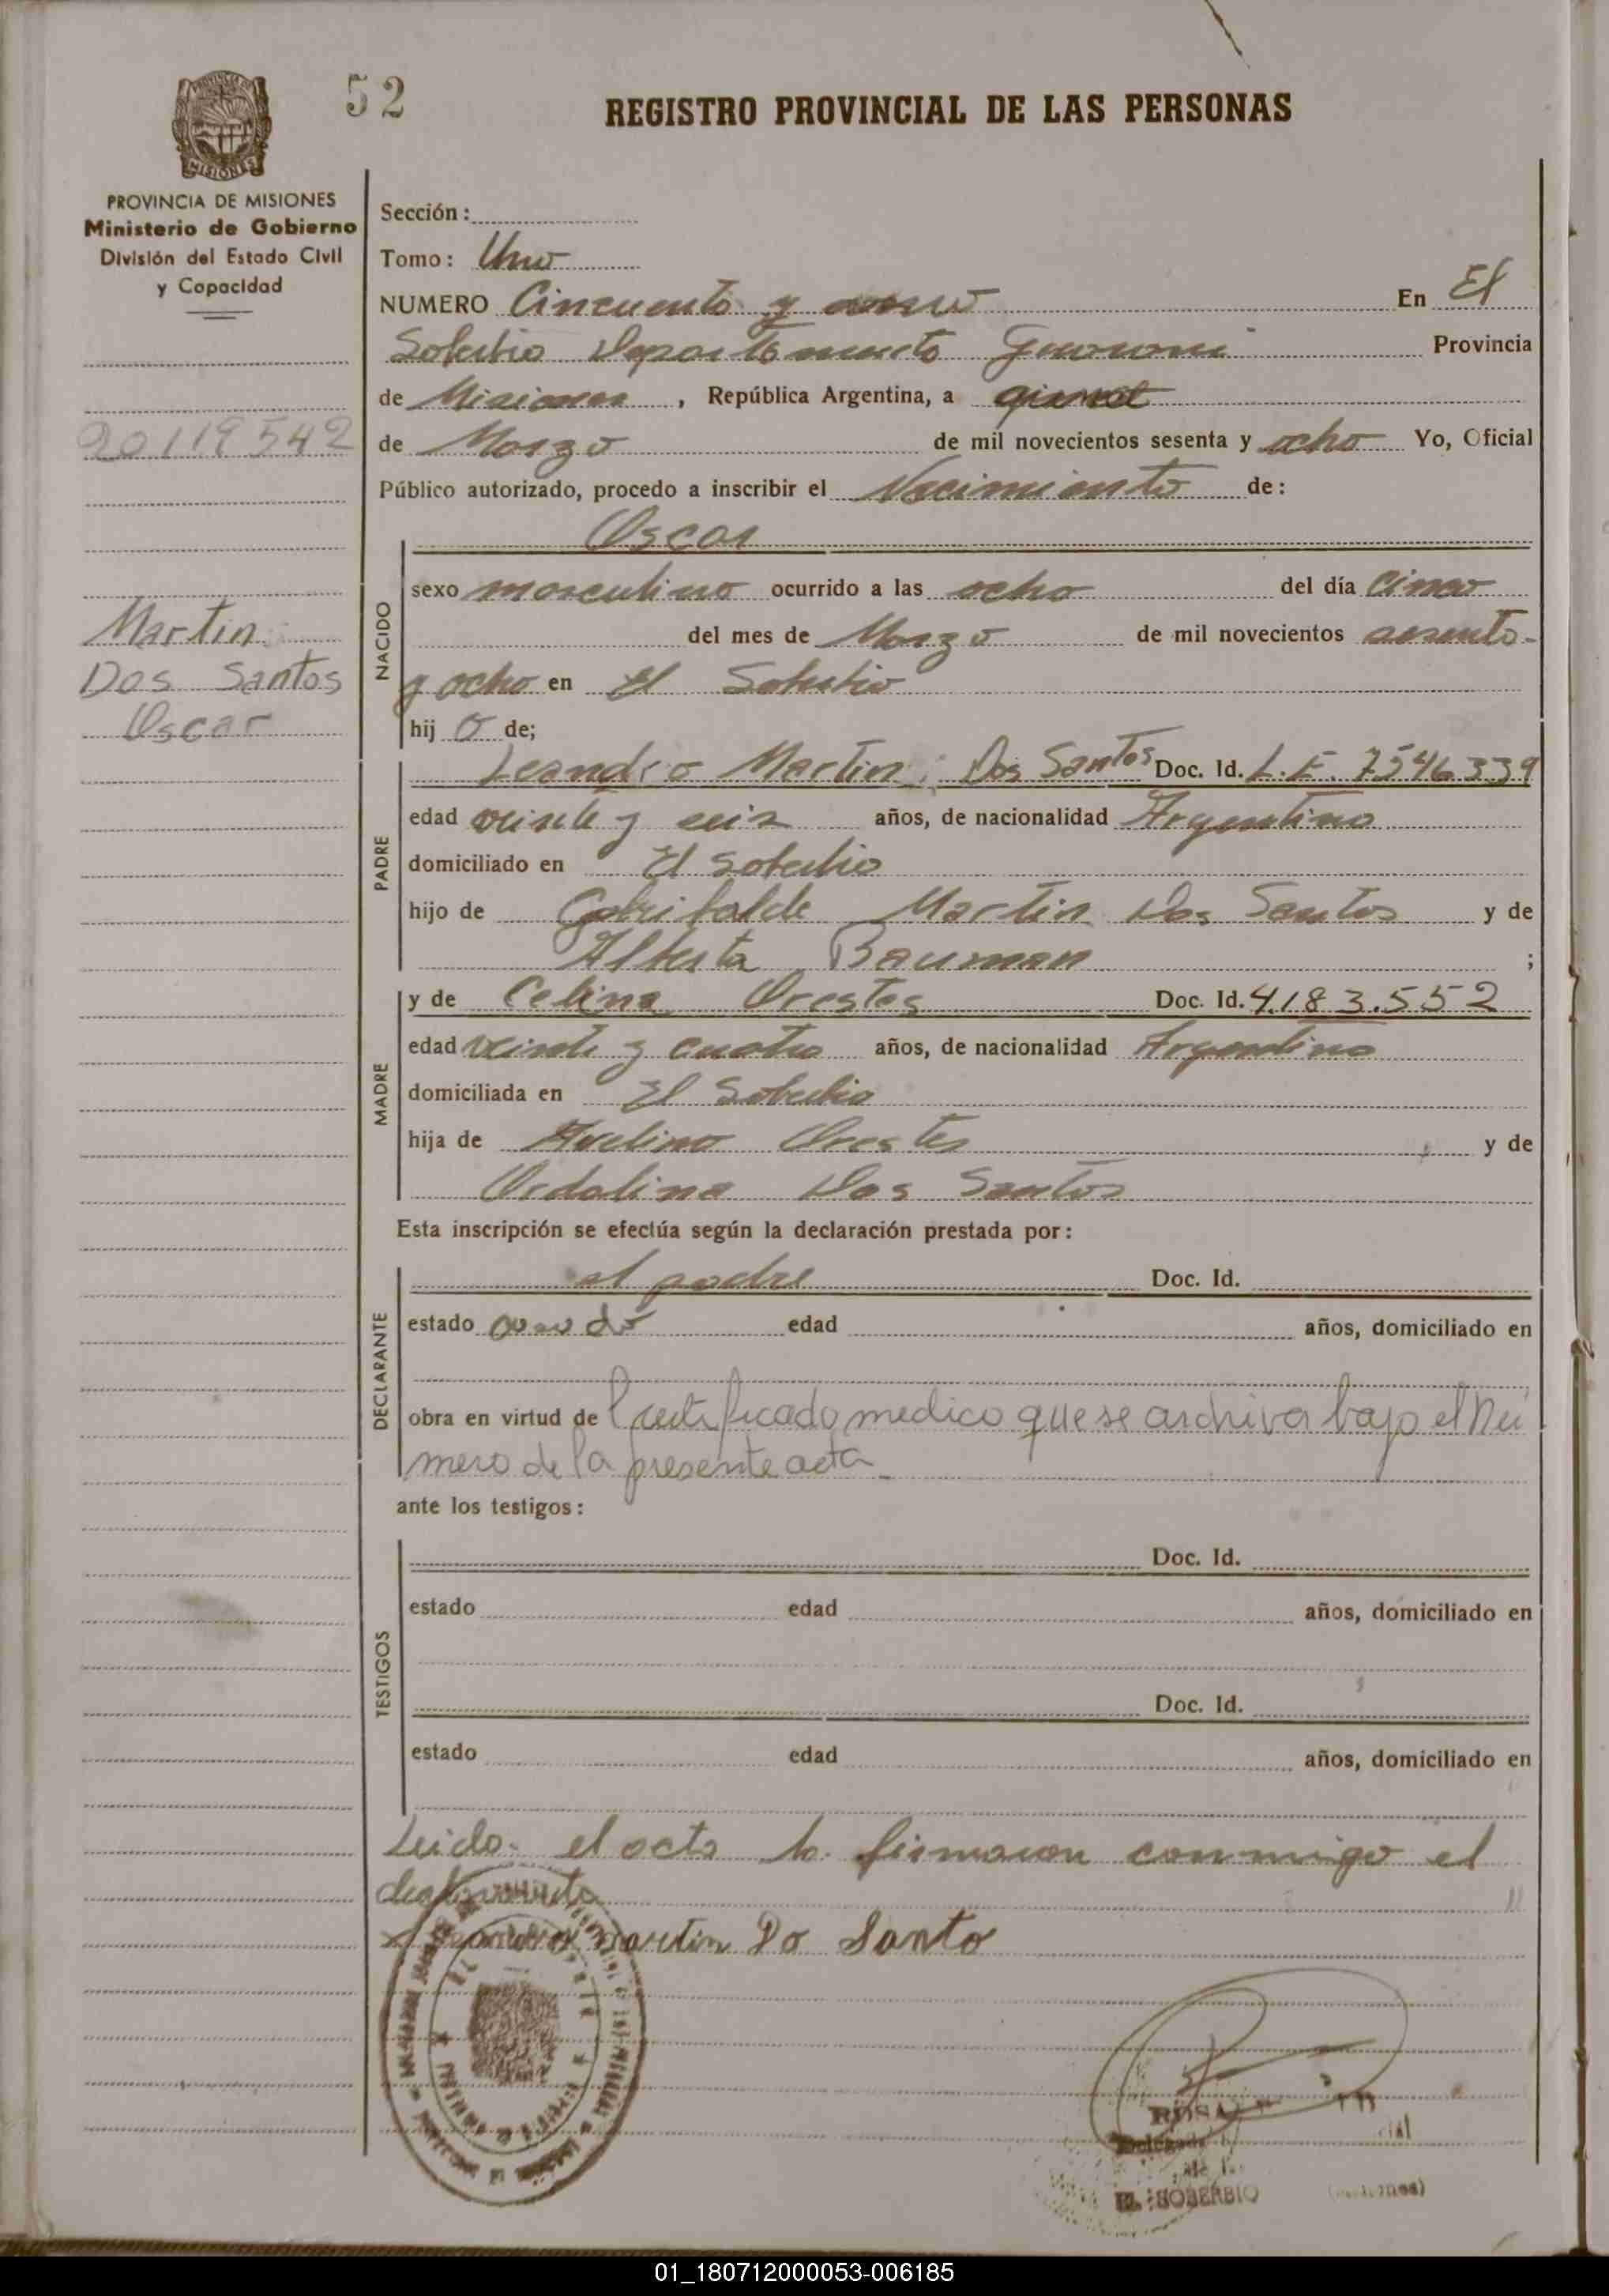 52
REGISTRO PROVINCIAL DE LAS PERSONAS
PROVINCIA DE MISIONES
Ministerio de Gobierno
División del Estado Civil
y Capacidad
20119542
Martin
Dos Santos
Oscar
Sección:
Tomo: Uno
NUMERO Cincuenta y En El
Soberbio Departamento Guarani Provincia
de Misiones, República Argentina, a
de Marzo de mil novecientos sesenta y ocho Yo, Oficial
Público autorizado, procedo a inscribir el Nacimiento de:
Oscar
NACIDO
sexo masculino ocurrido a las ocho del día Cinco
del mes de Marzo de mil novecientos sesenta
y ocho en El Soberbio
hij o de;
PADRE
Leandro Martin Dos Santos Doc. Id. L.E. 7546339
edad veinte y seis años, de nacionalidad Argentino
domiciliado en El Soberbio
hijo de Martin Dos Santos y de
Alberta Bauman ;
MADRE
y de Celina Orestes Doc. Id. 4.183.552
edad veinte y cuatro años, de nacionalidad Argentina
domiciliada en El Soberbio
hija de Avelino Orestes y de
Ordalina Dos Santos
Esta inscripción se efectúa según la declaración prestada por:
DECLARANTE
el padre Doc. Id.
estado edad años, domiciliado en
obra en virtud de Certificado medico que se archiva bajo el Nu
mero de la presente acta
ante los testigos:
TESTIGOS
Doc. Id.
estado edad años, domiciliado en
Doc. Id.
estado edad años, domiciliado en
Leida el acta la firmaron conmigo el
declarante
Leandro Martin Do Santo
ROSA
Delegado
EL SOBERBIO (Misiones)
01_180712000053-006185